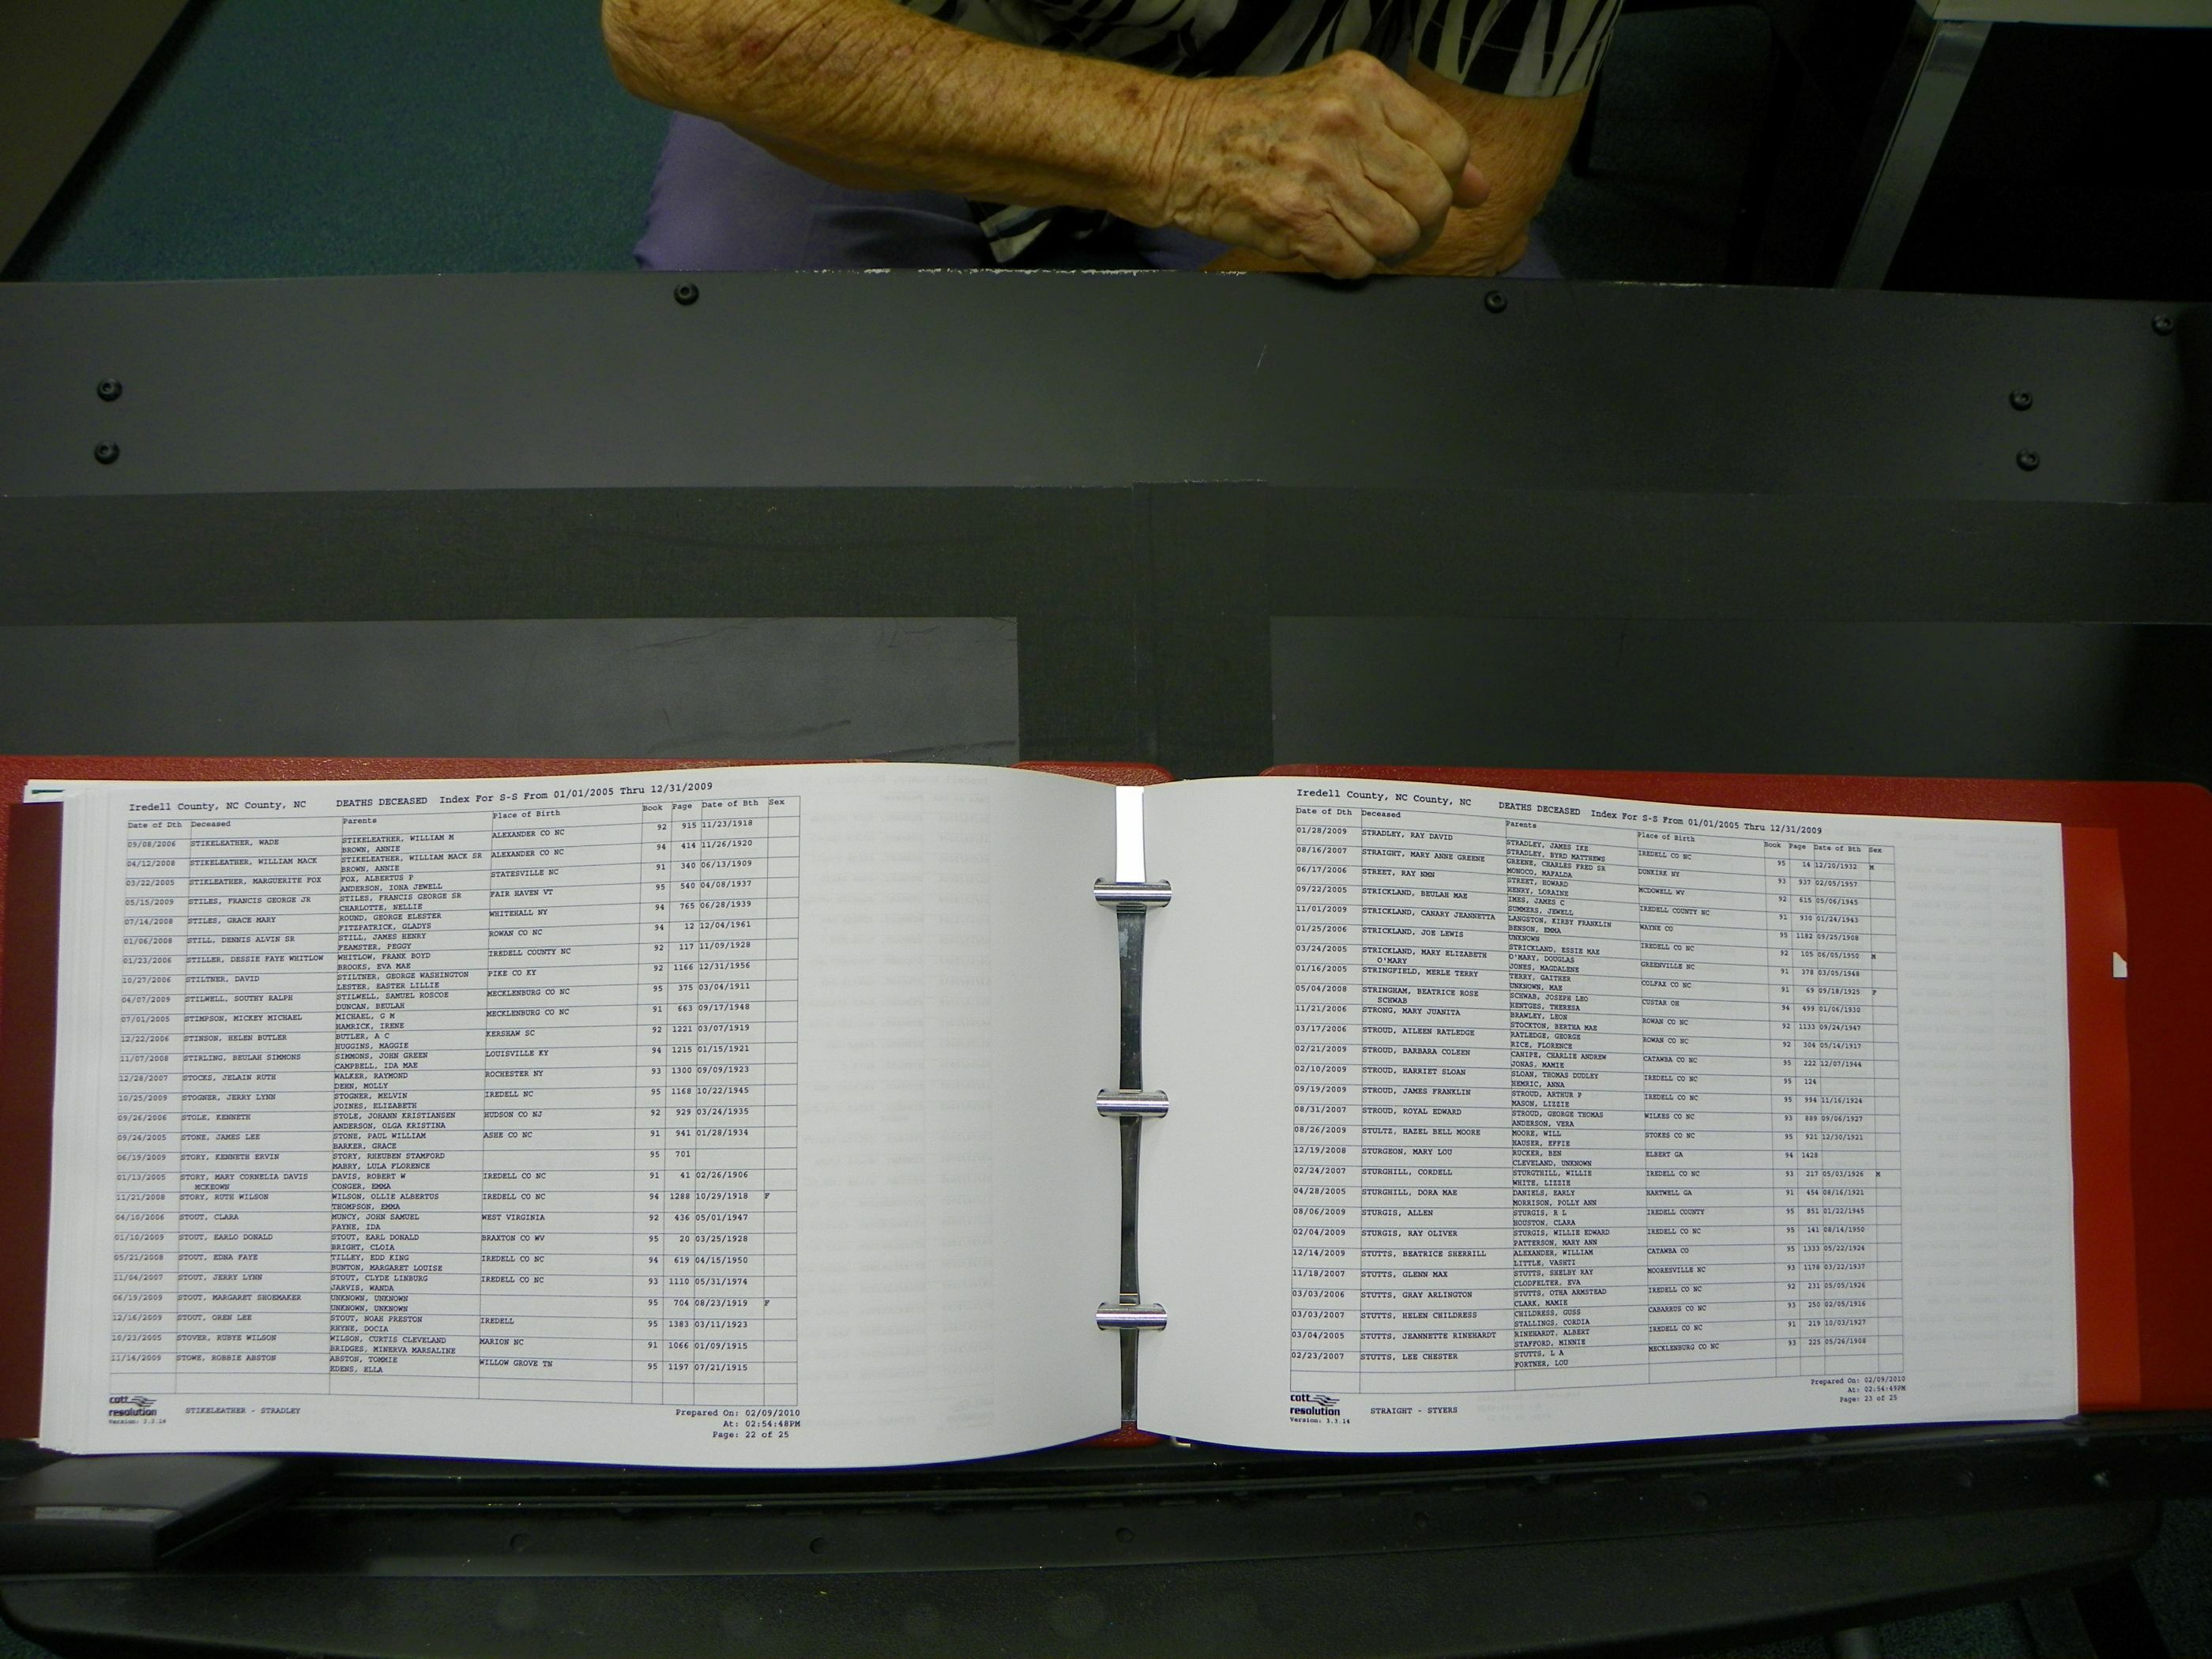 Iredell County, NC County, NC DEATHS DECEASED Index For S-S From 01/01/2005 Thru 12/31/2009
Date of Dth Deceased Parents Place of Birth Book Page Date of Bth Sex
09/08/2006 STIKELEATHER, WADE STIKELEATHER, WILLIAM M ALEXANDER CO NC 92 915 11/23/1918
BROWN, ANNIE
04/12/2008 STIKELEATHER, WILLIAM MACK STIKELEATHER, WILLIAM MACK SR ALEXANDER CO NC 94 414 11/26/1920
BROWN, ANNIE
03/22/2005 STIKLEATHER, MARGUERITE FOX FOX, ALBERTUS P STATESVILLE NC 91 340 06/13/1909
ANDERSON, IONA JEWELL
05/15/2009 STILES, FRANCIS GEORGE JR STILES, FRANCIS GEORGE SR FAIR HAVEN VT 95 540 04/08/1937
CHARLOTTE, NELLIE
07/14/2008 STILES, GRACE MARY ROUND, GEORGE ELESTER WHITEHALL NY 94 765 06/28/1939
FITZPATRICK, GLADYS
01/06/2008 STILL, DENNIS ALVIN SR STILL, JAMES HENRY ROWAN CO NC 94 12 12/04/1961
FEAMSTER, PEGGY
01/23/2006 STILLER, DESSIE FAYE WHITLOW WHITLOW, FRANK BOYD IREDELL COUNTY NC 92 117 11/09/1928
BROOKS, EVA MAE
10/27/2006 STILTNER, DAVID STILTNER, GEORGE WASHINGTON PIKE CO KY 92 1166 12/31/1956
LESTER, EASTER LILLIE
04/07/2009 STILWELL, SOUTHY RALPH STILWELL, SAMUEL ROSCOE MECKLENBURG CO NC 95 375 03/04/1911
DUNCAN, BEULAH
07/01/2005 STIMPSON, MICKEY MICHAEL MICHAEL, G M MECKLENBURG CO NC 91 663 09/17/1948
HAMRICK, IRENE
12/22/2006 STINSON, HELEN BUTLER BUTLER, A C KERSHAW SC 92 1221 03/07/1919
HUGGINS, MAGGIE
11/07/2008 STIRLING, BEULAH SIMMONS SIMMONS, JOHN GREEN LOUISVILLE KY 94 1215 01/15/1921
CAMPBELL, IDA MAE
12/28/2007 STOCKS, JELAIN RUTH WALKER, RAYMOND ROCHESTER NY 93 1300 09/09/1923
DEHN, MOLLY
10/25/2009 STOGNER, JERRY LYNN STOGNER, MELVIN IREDELL NC 95 1168 10/22/1945
JOINES, ELIZABETH
09/26/2006 STOLE, KENNETH STOLE, JOHANN KRISTIANSEN HUDSON CO NJ 92 929 03/24/1935
ANDERSON, OLGA KRISTINA
09/24/2005 STONE, JAMES LEE STONE, PAUL WILLIAM ASHE CO NC 91 941 01/28/1934
BARKER, GRACE
06/19/2009 STORY, KENNETH ERVIN STORY, RHEUBEN STAMFORD 95 701
MABRY, LULA FLORENCE
01/13/2005 STORY, MARY CORNELIA DAVIS DAVIS, ROBERT W IREDELL CO NC 91 41 02/26/1906
MCKEOWN CONGER, EMMA
11/21/2008 STORY, RUTH WILSON WILSON, OLLIE ALBERTUS IREDELL CO NC 94 1288 10/29/1918 F
THOMPSON, EMMA
04/10/2006 STOUT, CLARA MUNCY, JOHN SAMUEL WEST VIRGINIA 92 436 05/01/1947
PAYNE, IDA
01/10/2009 STOUT, EARLO DONALD STOUT, EARL DONALD BRAXTON CO WV 95 20 03/25/1928
BRIGHT, CLOIA
05/21/2008 STOUT, EDNA FAYE TILLEY, EDD KING IREDELL CO NC 94 619 04/15/1950
BUNTON, MARGARET LOUISE
11/04/2007 STOUT, JERRY LYNN STOUT, CLYDE LINBURG IREDELL CO NC 93 1110 05/31/1974
JARVIS, WANDA
06/19/2009 STOUT, MARGARET SHOEMAKER UNKNOWN, UNKNOWN 95 704 08/23/1919 F
UNKNOWN, UNKNOWN
12/16/2009 STOUT, OREN LEE STOUT, NOAH PRESTON IREDELL 95 1383 03/11/1923
RHYNE, DOCIA
10/23/2005 STOVER, RUBYE WILSON WILSON, CURTIS CLEVELAND MARION NC 91 1066 01/09/1915
BRIDGES, MINERVA MARSALINE
11/14/2009 STOWE, ROBBIE ABSTON ABSTON, TOMMIE WILLOW GROVE TN 95 1197 07/21/1915
EDENS, ELLA
cott
resolution STIKELEATHER - STRADLEY Prepared On: 02/09/2010
Version: 3.3.14 At: 02:54:48PM
Page: 22 of 25
Iredell County, NC County, NC DEATHS DECEASED Index For S-S From 01/01/2005 Thru 12/31/2009
Date of Dth Deceased Parents Place of Birth Book Page Date of Bth Sex
01/28/2009 STRADLEY, RAY DAVID STRADLEY, JAMES IKE IREDELL CO NC 95 14 12/20/1932 M
STRADLEY, BYRD MATTHEWS
08/16/2007 STRAIGHT, MARY ANNE GREENE GREENE, CHARLES FRED SR DUNKIRK NY 93 937 02/05/1957
MONOCO, MAFALDA
06/17/2006 STREET, RAY NMN STREET, HOWARD MCDOWELL WV 92 615 05/06/1945
HENRY, LORAINE
09/22/2005 STRICKLAND, BEULAH MAE IMES, JAMES C IREDELL COUNTY NC 91 930 01/24/1943
SUMMERS, JEWELL
11/01/2009 STRICKLAND, CANARY JEANNETTA LANGSTON, KIRBY FRANKLIN WAYNE CO 95 1182 09/25/1908
BENSON, EMMA
01/25/2006 STRICKLAND, JOE LEWIS UNKNOWN IREDELL CO NC 92 105 06/05/1950 M
STRICKLAND, ESSIE MAE
03/24/2005 STRICKLAND, MARY ELIZABETH O'MARY, DOUGLAS GREENVILLE NC 91 378 03/05/1948
O'MARY JONES, MAGDALENE
01/16/2005 STRINGFIELD, MERLE TERRY TERRY, GAITHER COLFAX CO NC 91 69 09/18/1925 F
UNKNOWN, MAE
05/04/2008 STRINGHAM, BEATRICE ROSE SCHWAB, JOSEPH LEO CUSTAR OH 94 499 01/06/1930
SCHWAB HENTGES, THERESA
11/21/2006 STRONG, MARY JUANITA BRAWLEY, LEON ROWAN CO NC 92 1133 09/24/1947
STOCKTON, BERTHA MAE
03/17/2006 STROUD, AILEEN RATLEDGE RATLEDGE, GEORGE ROWAN CO NC 92 304 05/14/1917
RICE, FLORENCE
02/21/2009 STROUD, BARBARA COLEEN CANIPE, CHARLIE ANDREW CATAWBA CO NC 95 222 12/07/1944
JONAS, MAMIE
02/10/2009 STROUD, HARRIET SLOAN SLOAN, THOMAS DUDLEY IREDELL CO NC 95 124
HEMRIC, ANNA
09/19/2009 STROUD, JAMES FRANKLIN STROUD, ARTHUR P IREDELL CO NC 95 994 11/16/1924
MASON, LIZZIE
08/31/2007 STROUD, ROYAL EDWARD STROUD, GEORGE THOMAS WILKES CO NC 93 889 09/06/1927
ANDERSON, VERA
08/26/2009 STULTZ, HAZEL BELL MOORE MOORE, WILL STOKES CO NC 95 921 12/30/1921
HAUSER, EFFIE
12/19/2008 STURGEON, MARY LOU RUCKER, BEN ELBERT GA 94 1428
CLEVELAND, UNKNOWN
02/24/2007 STURGHILL, CORDELL STURGTHILL, WILLIE IREDELL CO NC 93 217 05/03/1926 M
WHITE, LIZZIE
04/28/2005 STURGHILL, DORA MAE DANIELS, EARLY HARTWELL GA 91 454 08/16/1921
MORRISON, POLLY ANN
08/06/2009 STURGIS, ALLEN STURGIS, R L IREDELL COUNTY 95 851 01/22/1945
HOUSTON, CLARA
02/04/2009 STURGIS, RAY OLIVER STURGIS, WILLIE EDWARD IREDELL CO NC 95 141 08/14/1950
PATTERSON, MARY ANN
12/14/2009 STUTTS, BEATRICE SHERRILL ALEXANDER, WILLIAM CATAWBA CO 95 1333 05/22/1924
LITTLE, VASHTI
11/18/2007 STUTTS, GLENN MAX STUTTS, SHELBY RAY MOORESVILLE NC 93 1178 03/22/1937
CLODFELTER, EVA
03/03/2006 STUTTS, GRAY ARLINGTON STUTTS, OTHA ARMSTEAD IREDELL CO NC 92 231 05/05/1926
CLARK, MAMIE
03/03/2007 STUTTS, HELEN CHILDRESS CHILDRESS, GUSS CABARRUS CO NC 93 250 02/05/1916
STALLINGS, CORDIA
03/04/2005 STUTTS, JEANNETTE RINEHARDT RINEHARDT, ALBERT IREDELL CO NC 91 219 10/03/1927
STAFFORD, MINNIE
02/23/2007 STUTTS, LEE CHESTER STUTTS, L A MECKLENBURG CO NC 93 225 05/26/1908
FORTNER, LOU
cott
resolution STRAIGHT - STYERS Prepared On: 02/09/2010
Version: 3.3.14 At: 02:54:49PM
Page: 23 of 25